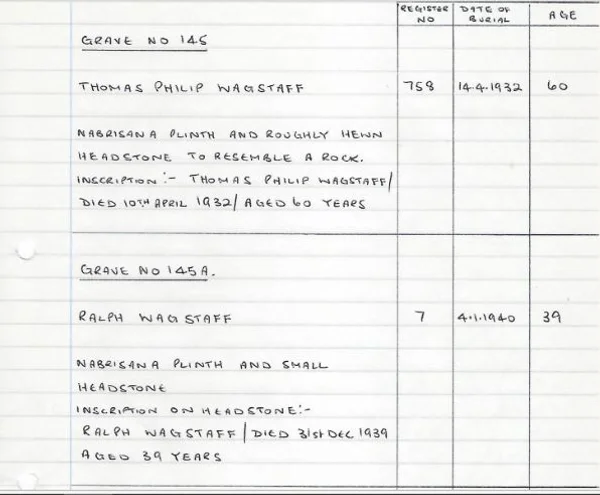 REGISTER NO DATE OF BURIAL AGE
GRAVE NO 145
THOMAS PHILIP WAGSTAFF 758 14.4.1932 60
NABRISANA PLINTH AND ROUGHLY HEWN
HEADSTONE TO RESEMBLE A ROCK.
INSCRIPTION:- THOMAS PHILIP WAGSTAFF/
DIED 10TH APRIL 1932/ AGED 60 YEARS
GRAVE NO 145A.
RALPH WAGSTAFF 7 4.1.1940 39
NABRISANA PLINTH AND SMALL
HEADSTONE
INSCRIPTION ON HEADSTONE:-
RALPH WAGSTAFF/DIED 31st DEC 1939
AGED 39 YEARS